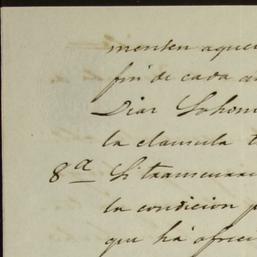 menten aque
fin de cada a
Diaz Sohom
la clausula t
8ª Si transcurr
la condicion p
que há ofrec